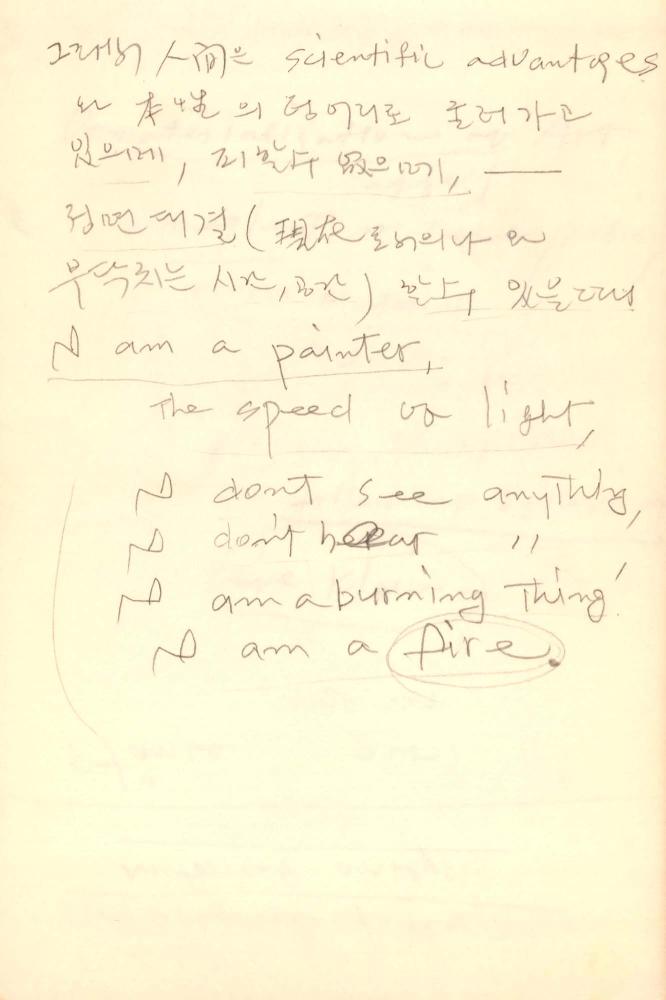 그래서 人間은 scientific advantages
와 本性의 덩어리로 흘러가고
있으메, 피할수 없으며,——
정면대결(現在 로서의 나와
부닥치는 시간, 공간) 할수 있을따름
I am a painter,
The speed of light,
I dont see anything,
I don't hear "
I am a burning Thing!
I am a fire.